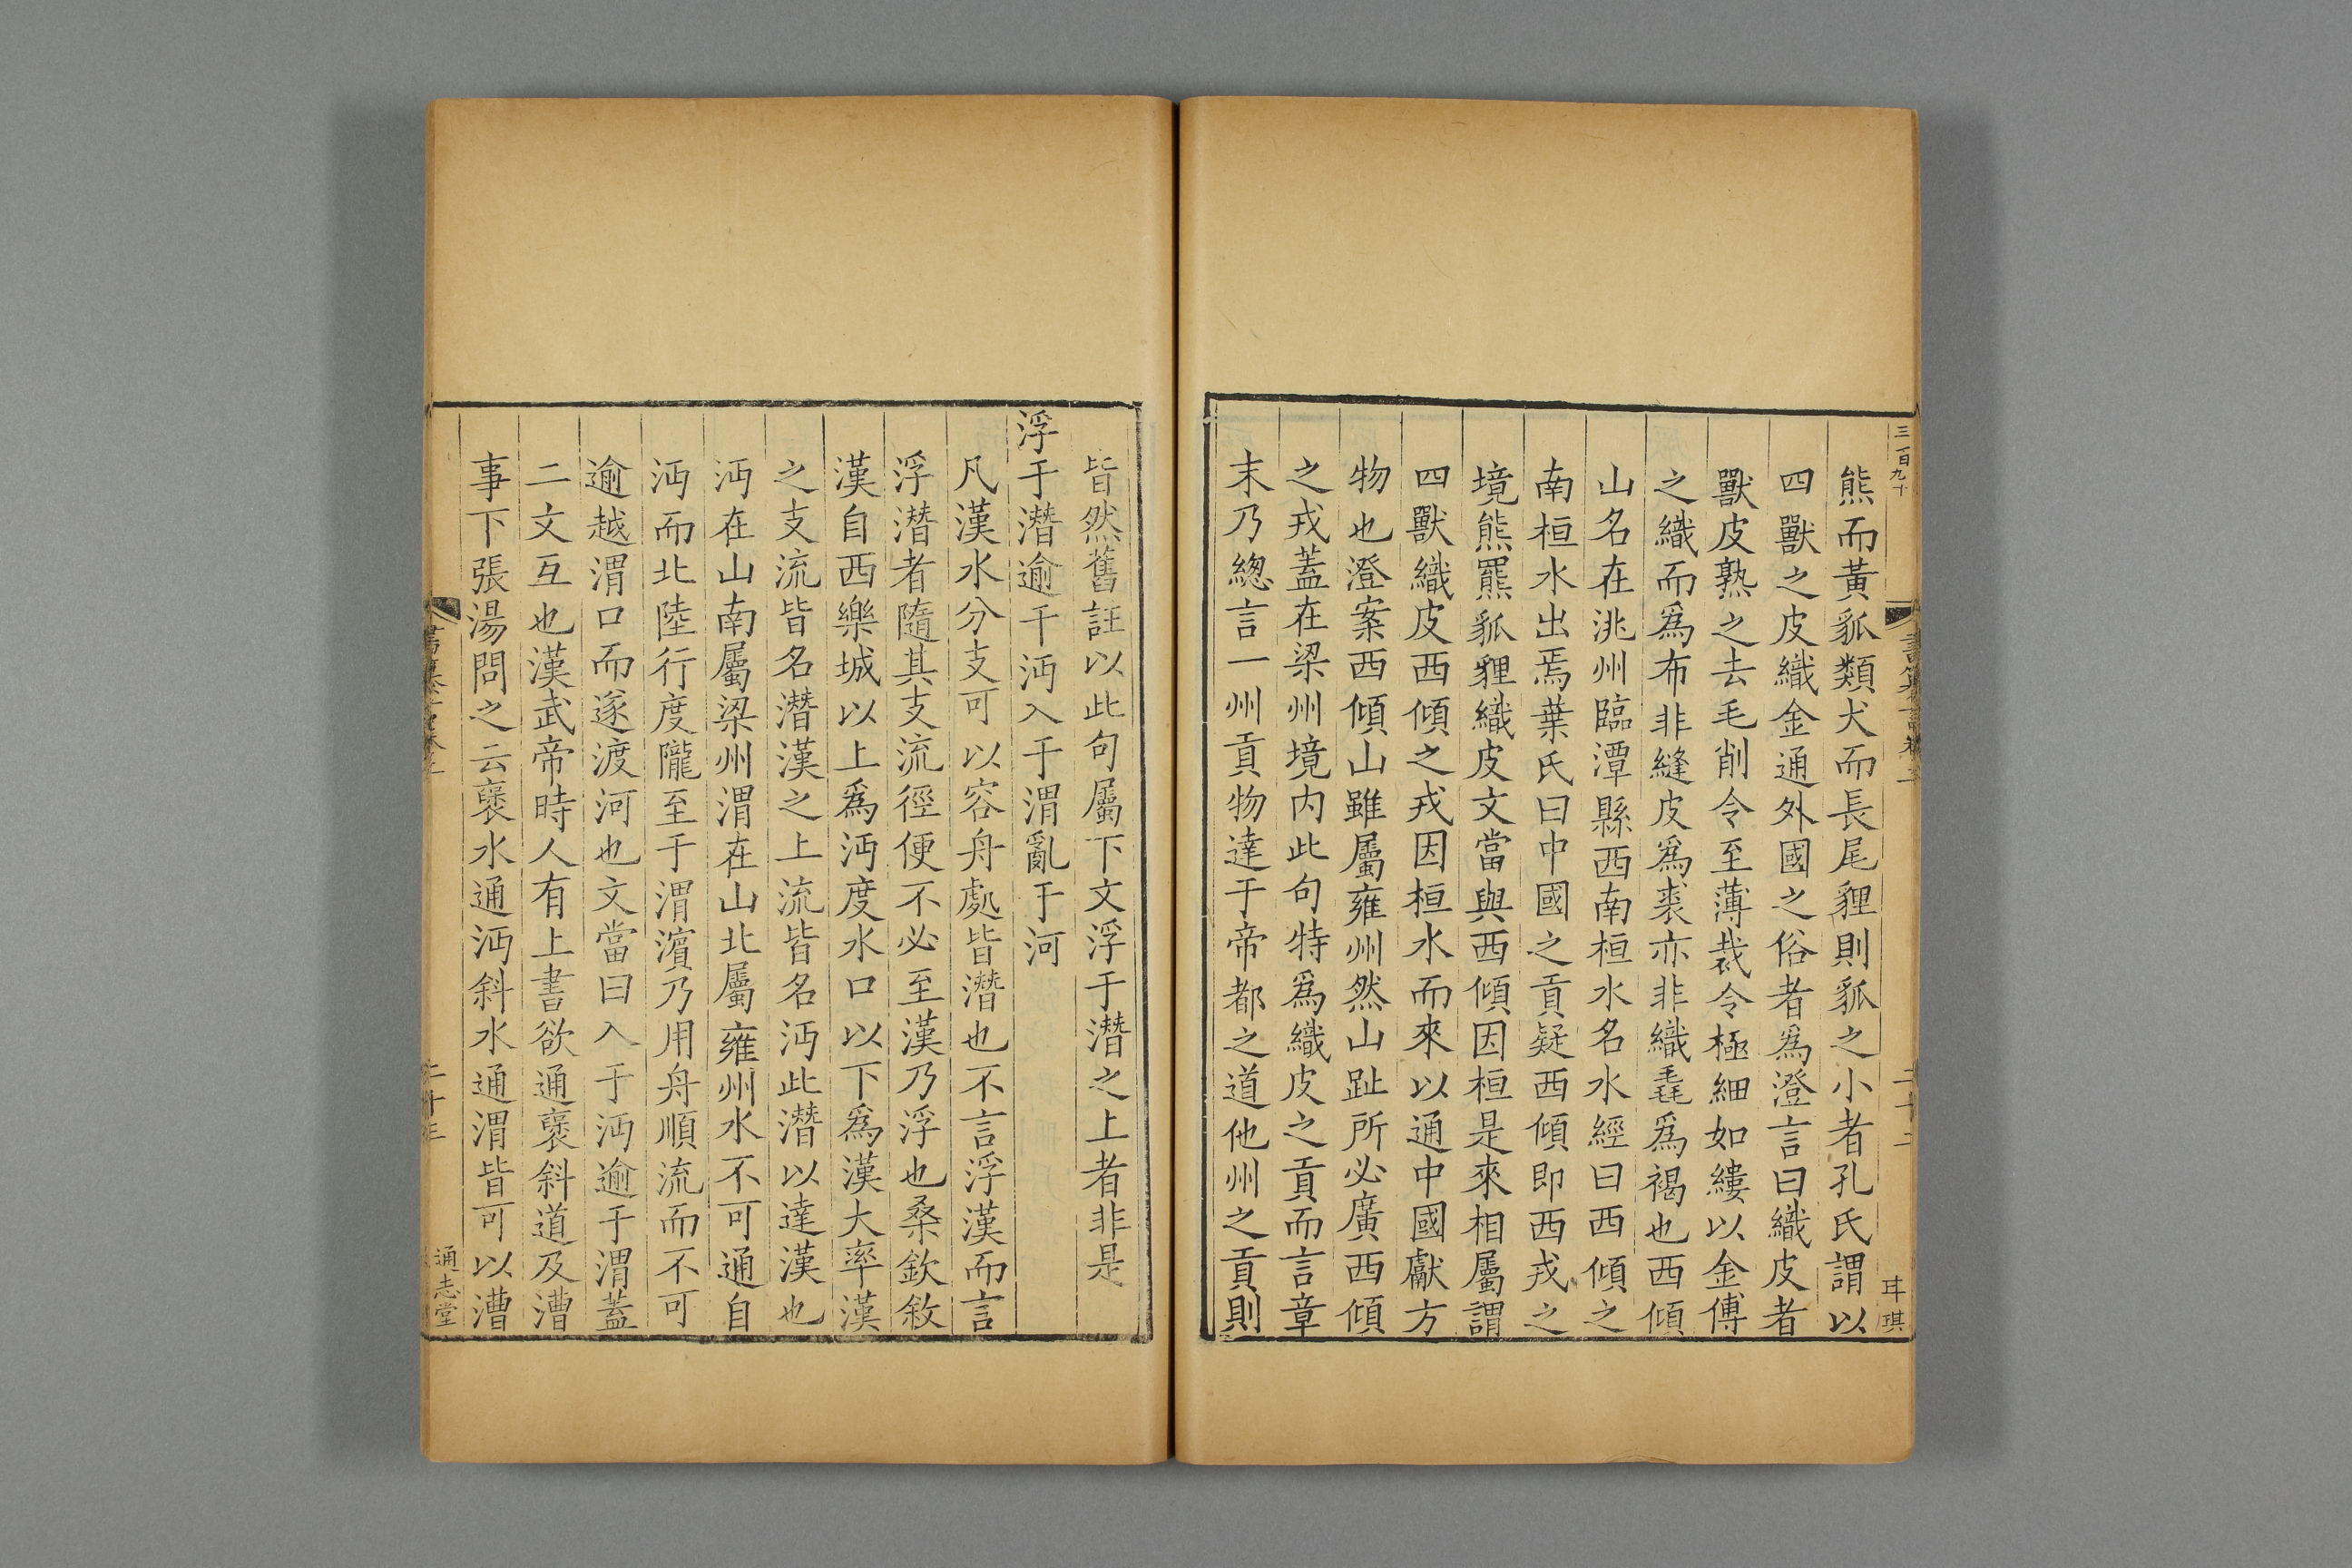 三百九十
熊而黃貀類犬而長尾貍則貀之小者孔氏謂以
四獸之皮織金通外國之俗者為澄言曰織皮者
獸皮熟之去毛削令至薄裁令極細如縷以金傅
之織而爲布非縫皮爲裘亦非織毳爲褐也西傾
山名在洮州臨潭縣西南桓水名水經曰西傾之
南桓水出焉葉氏曰中國之貢疑西傾即西戎之
境熊羆貀貍織皮文當與西傾因桓是來相屬謂
四獸織皮西傾之戎因桓水而來以通中國獻方
物也澄案西傾山雖屬雍州然山趾所必廣西傾
之戎蓋在梁州境內此句特爲織皮之貢而言章
末乃緫言一州貢物達于帝都之道他州之貢則
皆然舊註以此句屬下文浮于潛之上者非是
浮于潛逾于沔入于渭亂于河
凡漢水分支可以容舟處皆潛也不言浮漢而言
浮潛者隨其支流徑便不必至漢乃浮也桑欽敘
漢自西樂城以上爲沔度水口以下爲漢大率漢
之支流皆名潛漢之上流皆名沔此潛以達漢也
沔在山南屬梁州渭在山北屬雍州水不可通自
沔而北陸行度隴至于渭濵乃用舟順流而不可
逾越渭口而遂渡河也文當曰入于沔逾于渭蓋
二文互也漢武帝時人有上書欲通褒斜道及漕
事下張湯問之云褒水通沔斜水通渭皆可以漕
通志堂